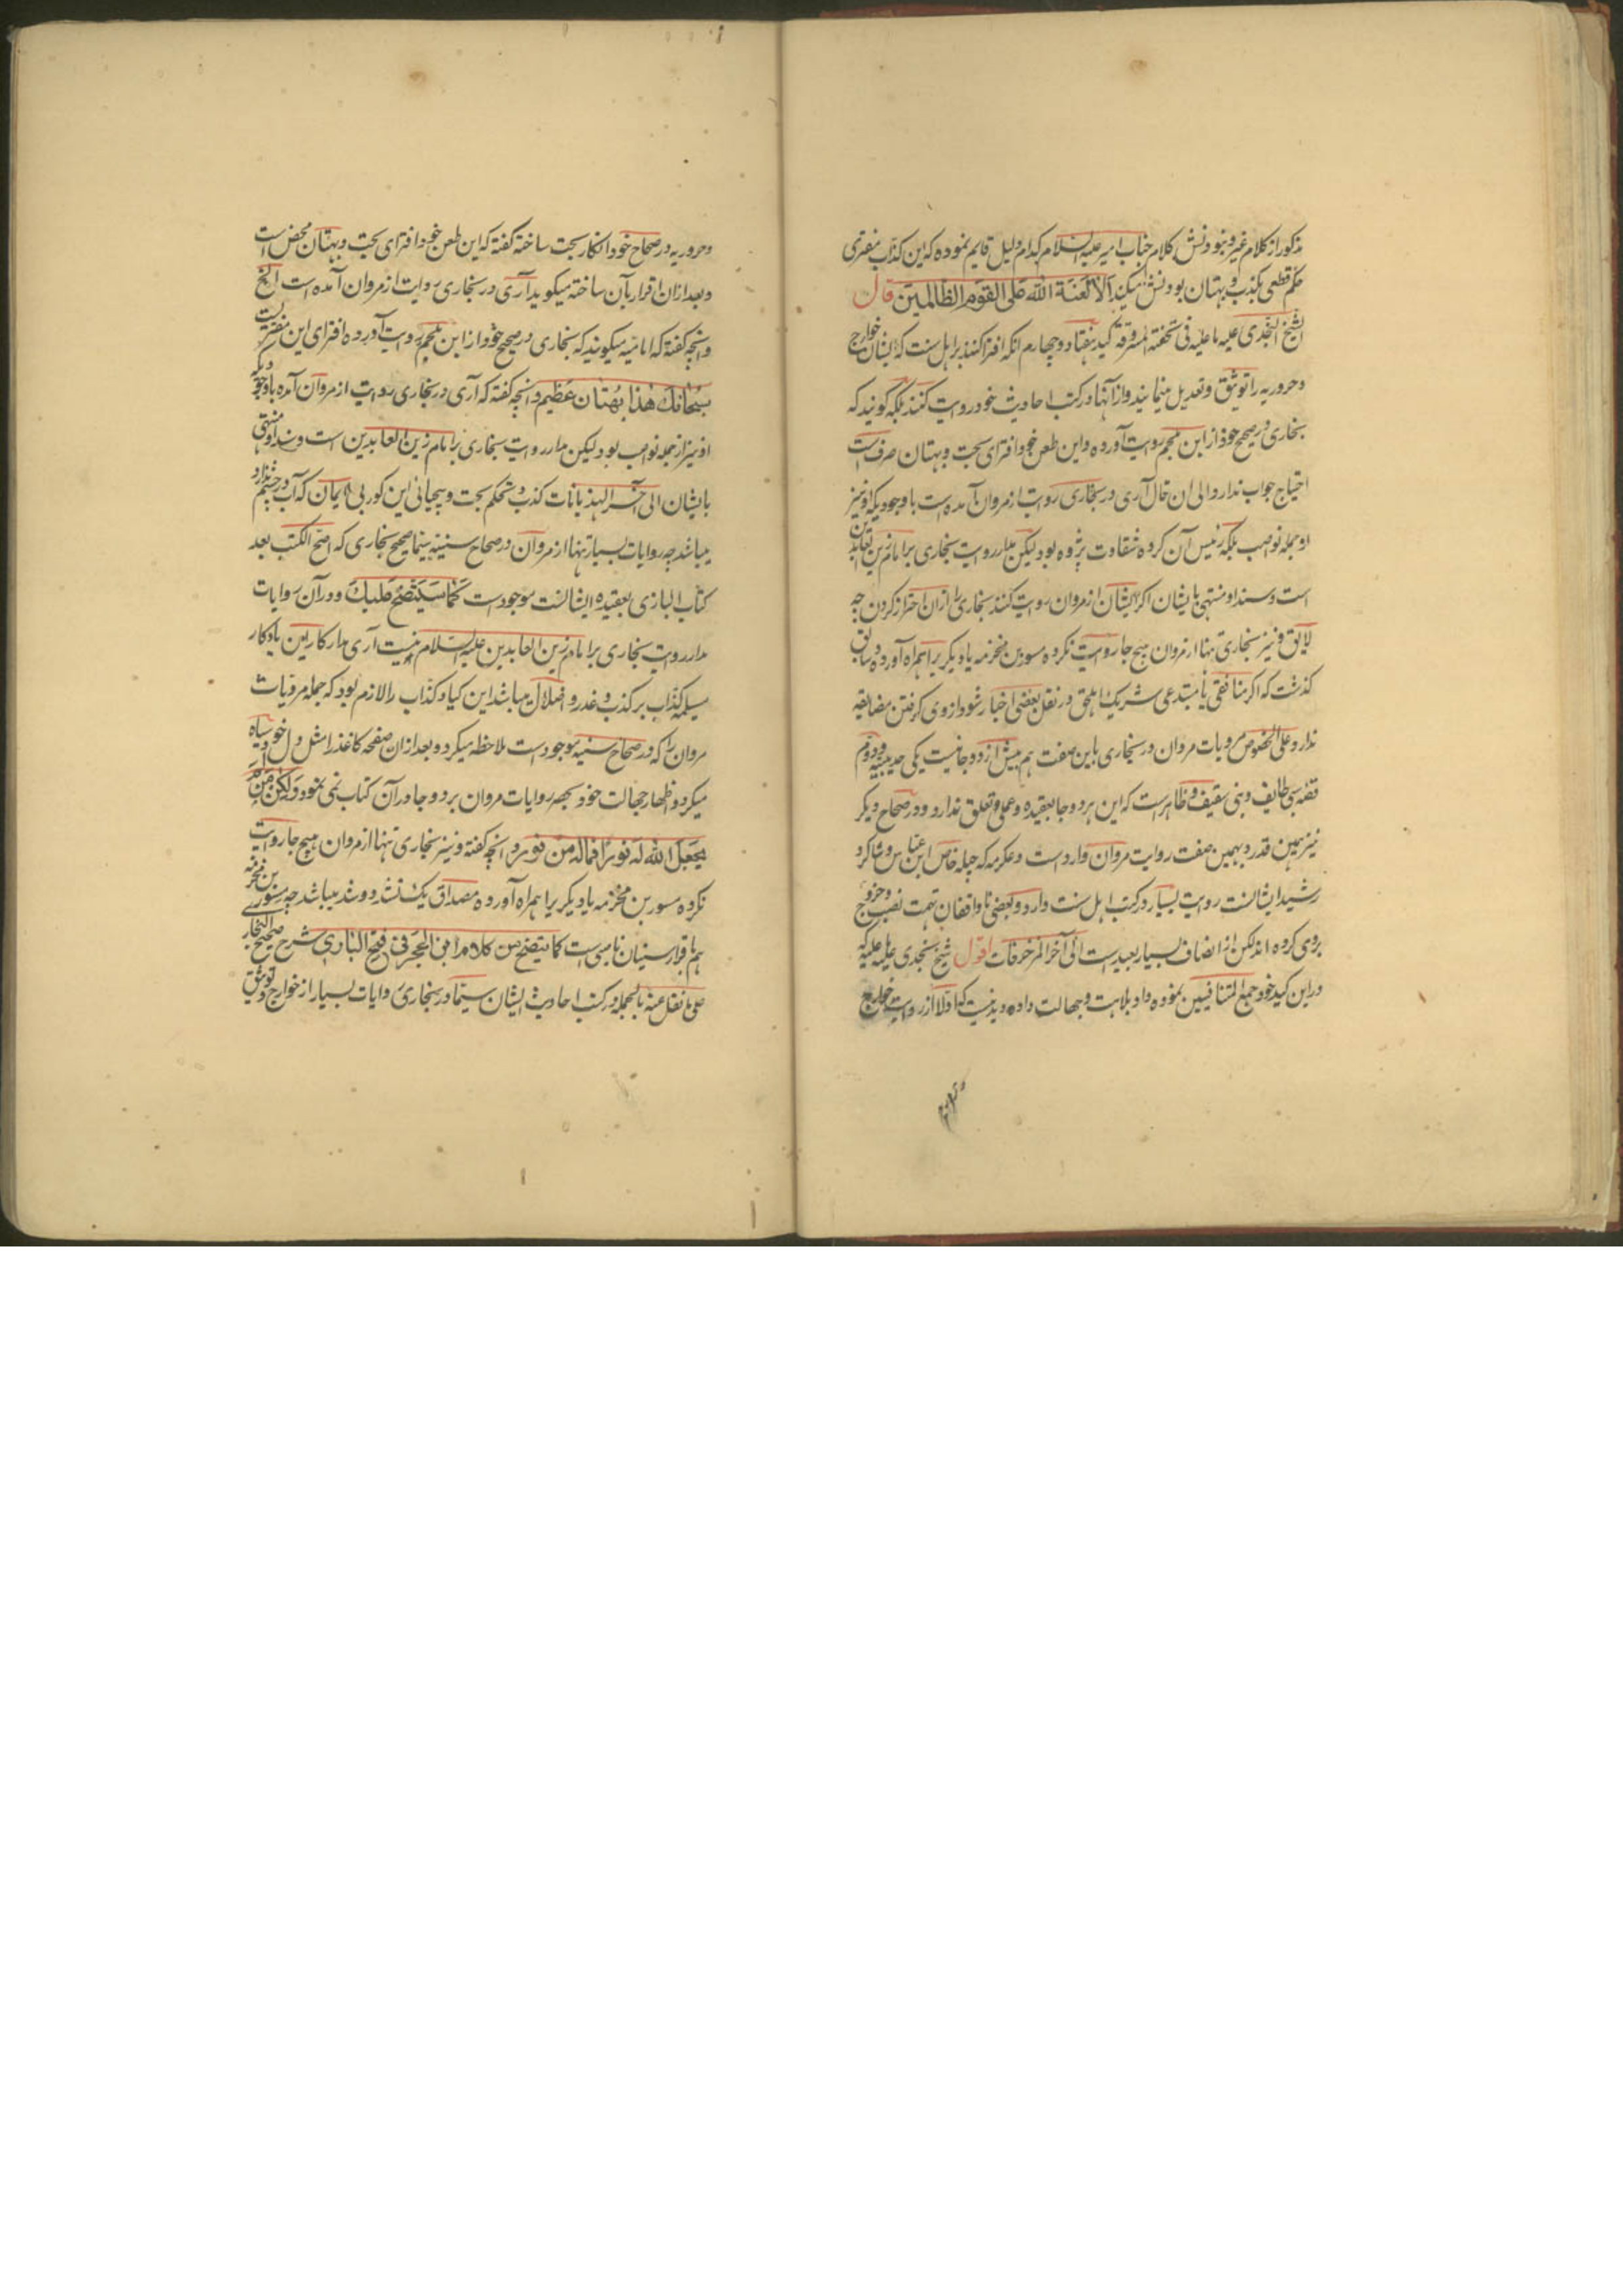 مذکور از کلام غیر و نبودنش کلام جناب امیر علیه السلام کدام دلیل قایم نموده که این کذاب مفتری
حکم قطعی بکذب و بهتان بودنش میکند الا لعنة الله علی القوم الظالمین قال
الشیخ النجدی علیه ما علیه فی تحفته المسروقة کید هفتاد و چهارم آنکه افترا کنند بر اهل سنت که ایشان خوارج
و حروریه را توثیق و تعدیل مینمایند و از آنها در کتب احادیث خود روایت کنند بلکه گویند که
بخاری در صحیح خود از ابن ملجم روایت آورده و این طعن خود افترای بحت و بهتان صرف است
احتیاج جواب ندارد الی ان قال آری در بخاری روایت از مروان آمده است باوجودیکه او نیز
از جمله نواصب بلکه رئیس آن کروه شقاوت پژوه بود لیکن مدار روایت بخاری بر امام زین العابدین
است و سند او منتهی بایشان اکر ایشان از مروان روایت کنند بخاری را ازان احتراز کردن چه
لایق و نیز بخاری تنها از مروان هیچ جا روایت نکرده مسور بن مخرمه یا دیکر یرا همراه آورده و سابق
کذشت که اکر منافقی یا مبتدعی شریک اهل حق در نقل بعضی اخبار شود از وی کرفتن مضایقه
ندارد و علی الخصوص مرویات مروان در بخاری باین صفت هم بیش از دو جا نیست یکی حدیبیه و دوم
قصه سبی طایف و بنی ثقیف و ظاهر است که این هر دو جا بعقیده و عمل و تعلق ندارد و در صحاح دیکر
نیز همین قدر و بهمین صفت روایت مروان وارد است و عکرمه که چیله خاص ابن عباس و شاکرد
رشید ایشانست روایت بسیار در کتب اهل سنت دارد و بعضی ناواقفان تهمت نصب و خروج
بروی کرده اند لکن از انصاف بسیار بعید است الی آخر المزخرفات اقول شیخ نجدی علیه ما علیه که
در این کید خود جمع المتنافیین نموده داد بلاهت و جهالت داده و بدینست که اولا از روایت خوارج
و حروریه در صحاح خود انکار بحت ساخته کفته که این طعن خود افترای بحت و بهتان محض است
و بعد ازان اقرار بآن ساخته میکوید آری در بخاری روایت از مروان آمده است الخ
و آنچه کفته که امامیه میکویند که بخاری در صحیح خود از ابن ملجم روایت آورده افترای این مفتریست
سبحانك هذا بهتان عظیم و آنچه کفته که آری در بخاری روایت از مروان آمده باوجودیکه
او نیز از جمله نواصب بود لیکن مدار روایت بخاری بر امام زین العابدین است و سند او منتهی
بایشان الی آخر الهذیانات کذب و تحکم بحت و بیحیائی این کور بی ایمان که آب در چشم ندارد
میباشد چه روایات بسیار تنها از مروان در صحاح سنیه سیما صحیح بخاری که اصح الکتب بعد
کتاب الباری بعقیده ایشانست موجود است کما سیتضح علیك و در آن روایات
مدار روایت بخاری بر امام زین العابدین علیه السلام نیست آری مدار کار این یادکار
مسیلمه کذاب بر کذب و غدر و اضلال میباشد این کیاد کذاب را لازم بود که جمله مرویات
مروان را که در صحاح سنیه موجود است ملاحظه میکرد و بعد ازان صفحه کاغذ را مثل دل خود سیاه
میکرد و اظهار جهالت خود بحصر روایات مروان بر دو جا در آن کتاب نمی نمود ولکن من لم
یجعل الله له نورا فماله من نور و آنچه کفته و نیز بخاری تنها از مروان هیچ جا روایت
نکرده مسور بن مخرمه یا دیکر یرا همراه آورده مصداق یک نشد دو شد میباشد چه مسور بن مخرمه
هم باقرار سنیان ناصبی است کما یتضح من کلام ابن الحجر فی فتح الباری شرح صحیح البخاری
علی ما نقل عنه بالجمله در کتب احادیث ایشان سیما در بخاری روایات بسیار از خوارج و توثیق